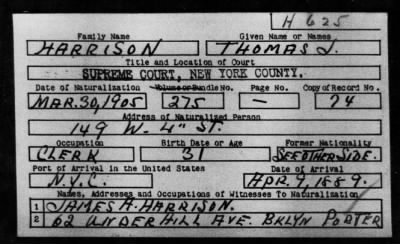 H 625
Family Name Given Name or Names
HARRISON THOMAS J.
Title and Location of Court
SUPREME COURT, NEW YORK COUNTY.
Date of Naturalization Volume or Bundle No. Page No. Copy of Record No.
MAR. 30, 1905 275 — 74
Address of Naturalized Person
149 W. 4" ST.
Occupation Birth Date or Age Former Nationality
CLERK 31 SEE OTHER SIDE.
Port of Arrival in the United States Date of Arrival
N.Y.C. APR. 9, 1889.
Names, Addresses and Occupations of Witnesses To Naturalization
1 JAMES A. HARRISON.
2 62 UNDERHILL AVE. BKLYN PORTER